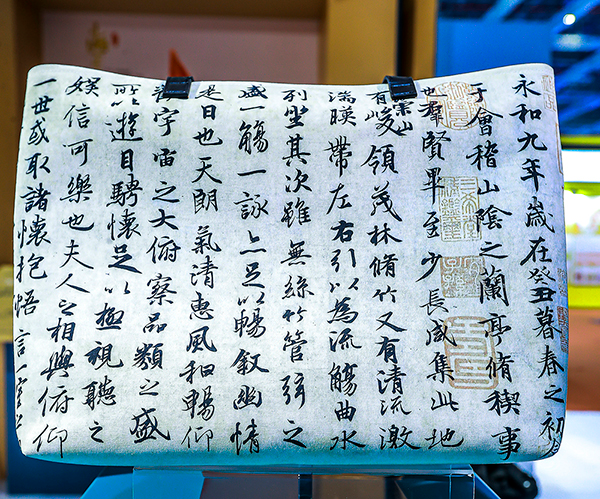 永和九年歲在癸丑暮春之初
于會稽山陰之蘭亭脩稧事
也羣賢畢至少長咸集此地
有崇山峻領茂林脩竹又有清流激
湍暎帶左右引以為流觴曲水
列坐其次雖無絲竹管弦之
盛一觴一詠亦足以暢敘幽情
是日也天朗氣清惠風和暢仰
觀宇宙之大俯察品類之盛
所以遊目騁懷足以極視聽之
娛信可樂也夫人之相與俯仰
一世或取諸懷抱悟言一室